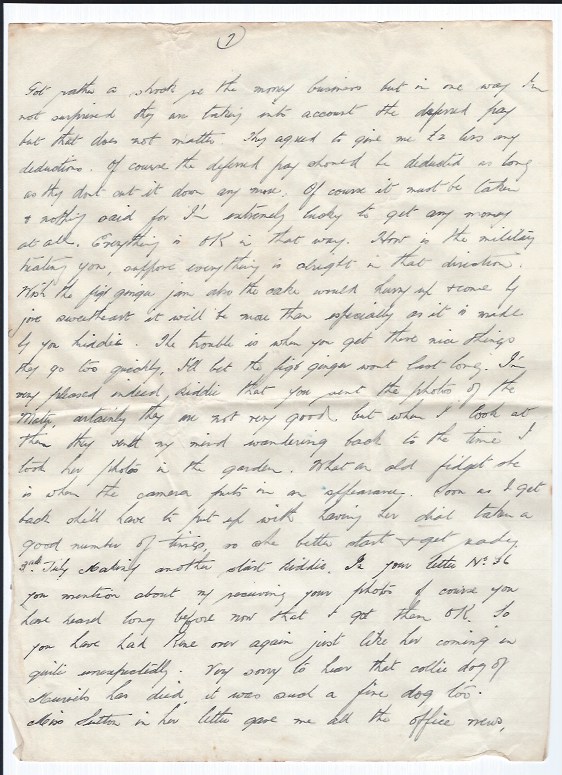 7
Got rather a shock re the money business but in one way I'm
not surprised they are taking into account the deferred pay
but that does not matter. They agreed to give me £2 less any
deductions. Of course the deferred pay should be deducted as long
as they dont cut it down any more. Of course it must be taken
& nothing said for I'm extremely lucky to get any money
at all. Everything is OK in that way. How is the military
treating you, suppose everything is alright in that direction.
Wish the figs ginger jam also the cake would hurry up & come by
jove sweetheart it will be more than especially as it is made
by you Kiddie. The trouble is when you get these nice things
they go too quickly, I'll bet the figs ginger wont last long. I'm
very pleased indeed Kiddie that you sent the photos of the
certainly they are not very good but when I look at
them they send my mind wandering back to the time I
took her photos in the garden. What an old fidget she
is when the camera puts in an appearance. Soon as I get
back she'll have to put up with having her dial taken a
good number of times, so she better start & get ready
July Making another start Kiddie. In your letter No 36
you mention about my receiving your photos of course you
have heard long before now that I got them OK. So
you have had over again just like her coming in
quite unexpectedly. Very sorry to hear that collie dog of
has died, it was such a fine dog too.
Miss Sutton in her letter gave me all the office news,